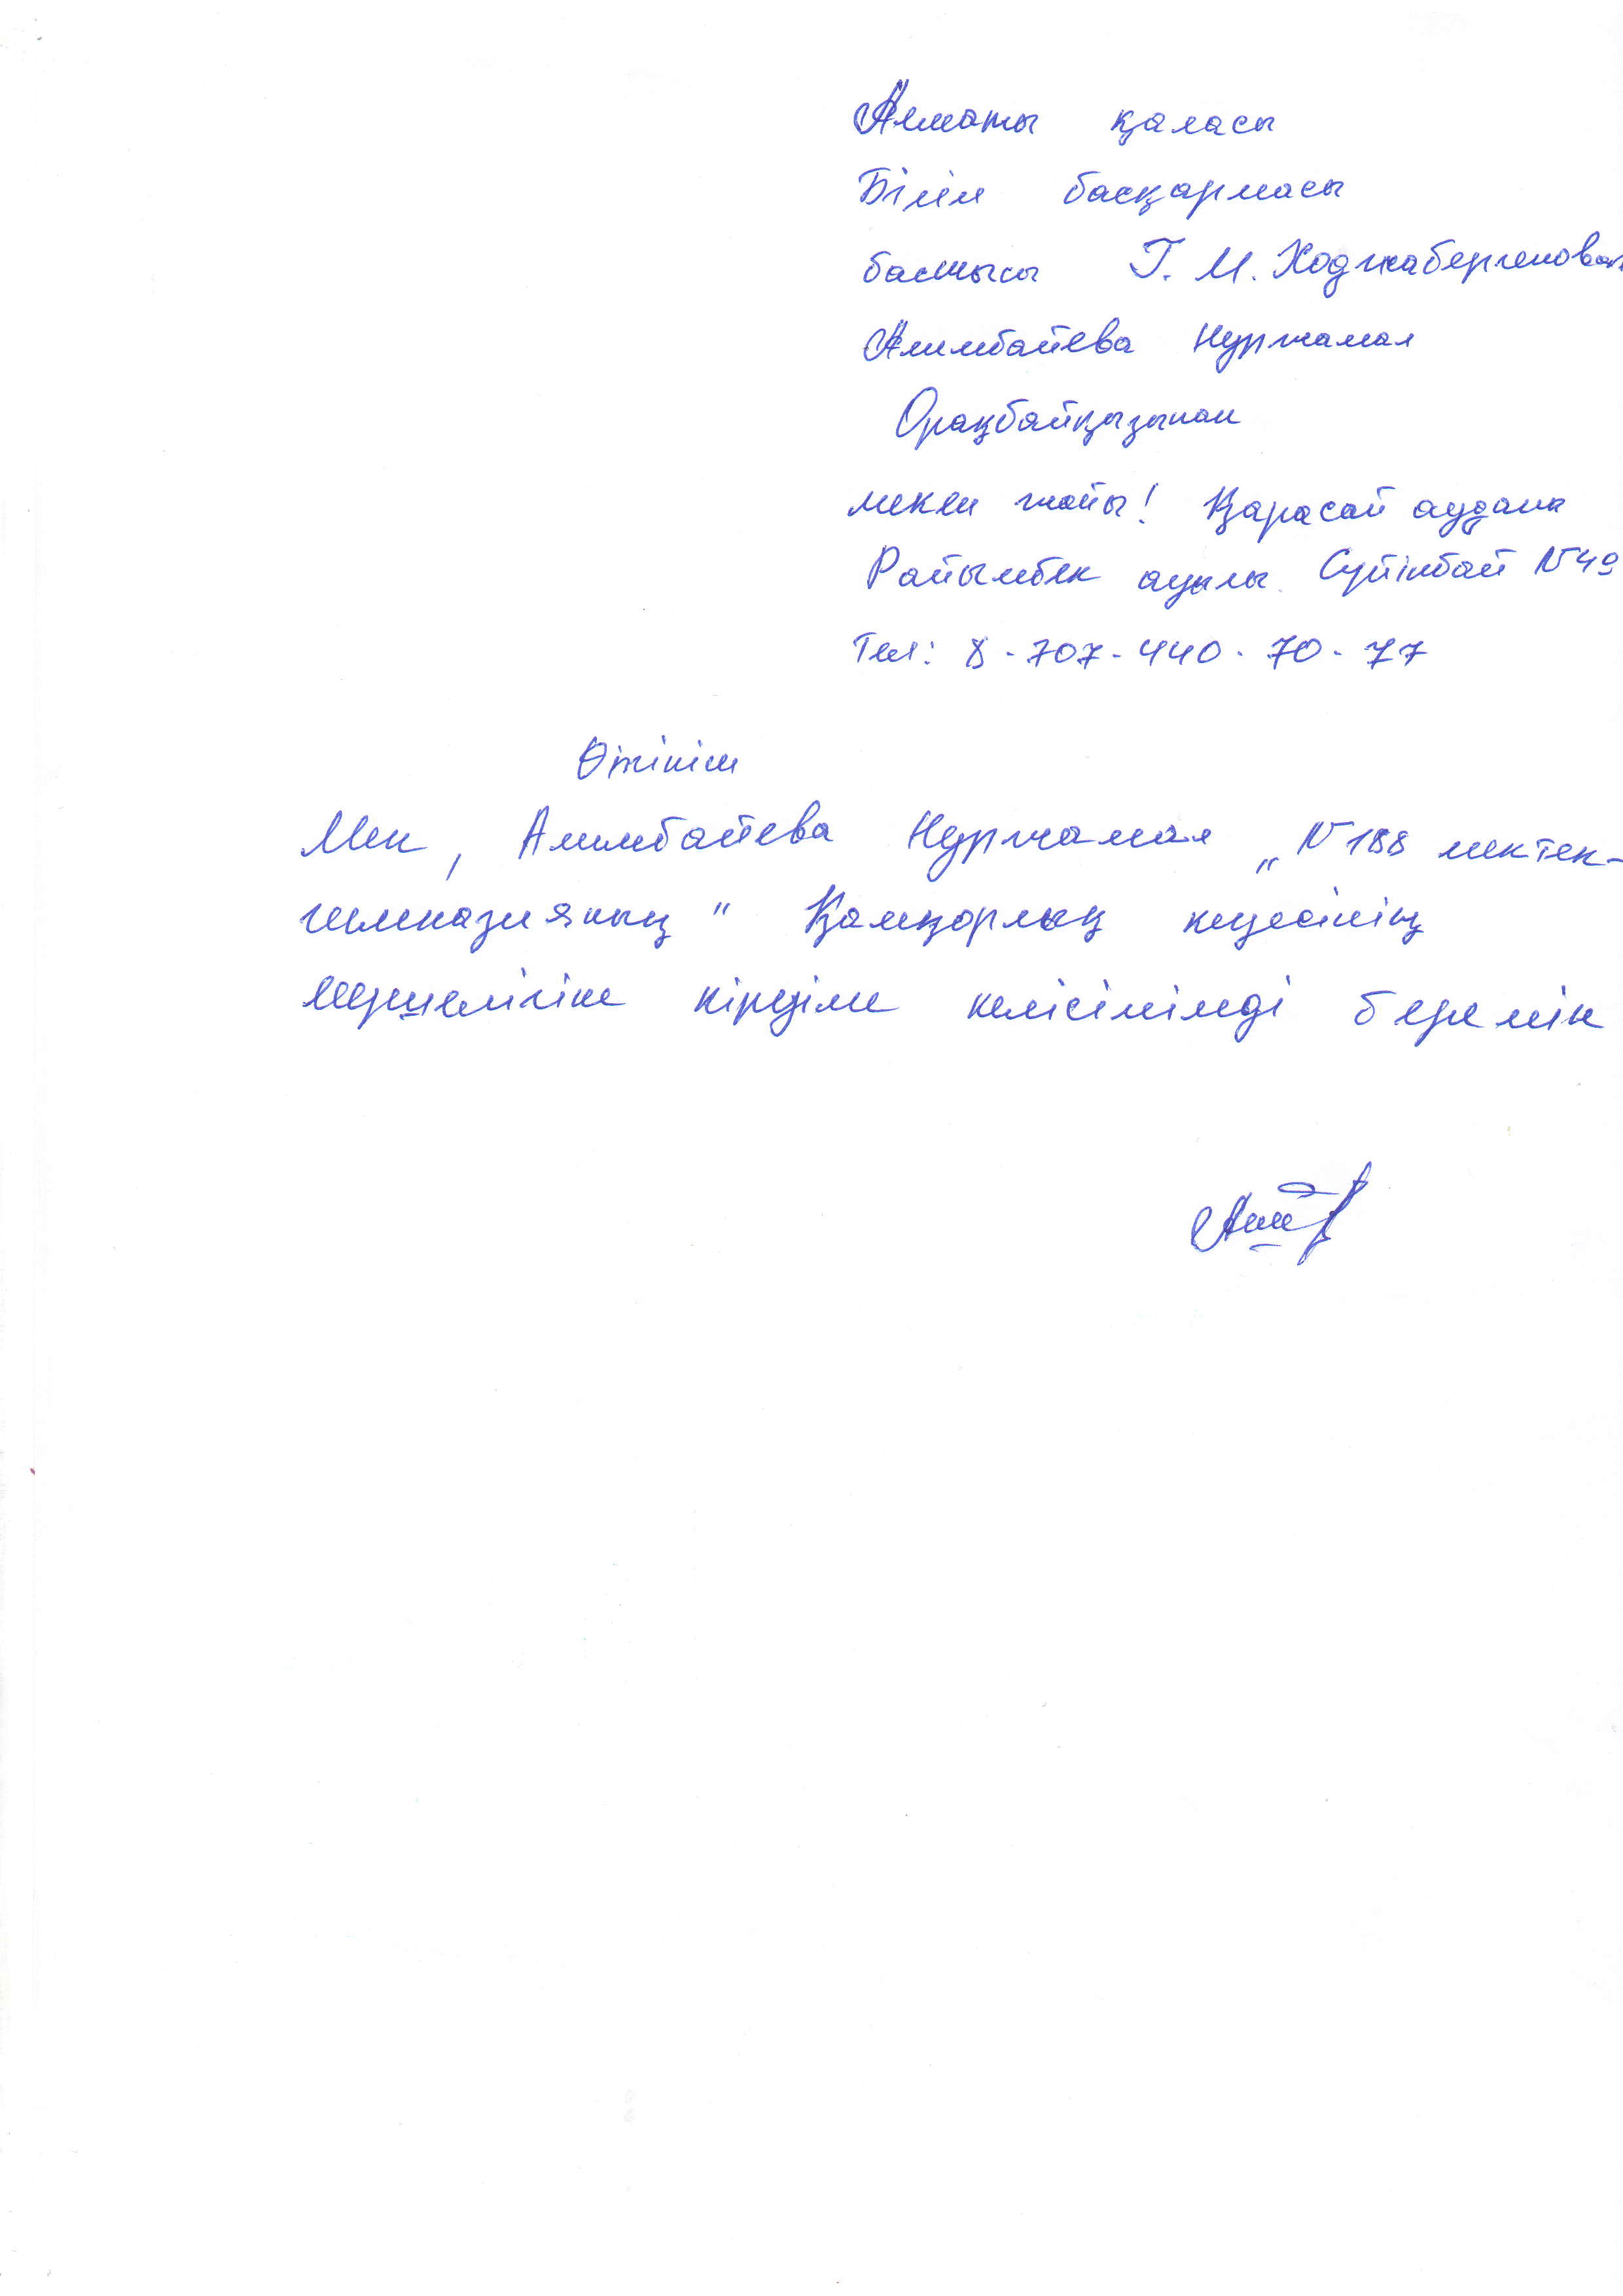 Алматы қаласы
Білім басқармасы
басшысы Г. М. Ходжабергеноваға
Алимбайева Нуржамал
Орақбайқызынан
мекен жайы! Қарасай ауданы
Райымбек ауылы. Сүйінбай №49
Тел: 8-707-440-70-77
Өтініш
Мен, Алимбайева Нуржамал „№188 мектеп-
гимназияның" Қамқорлық кеңесінің
мүшелігіне кіруіме келісімімді беремін